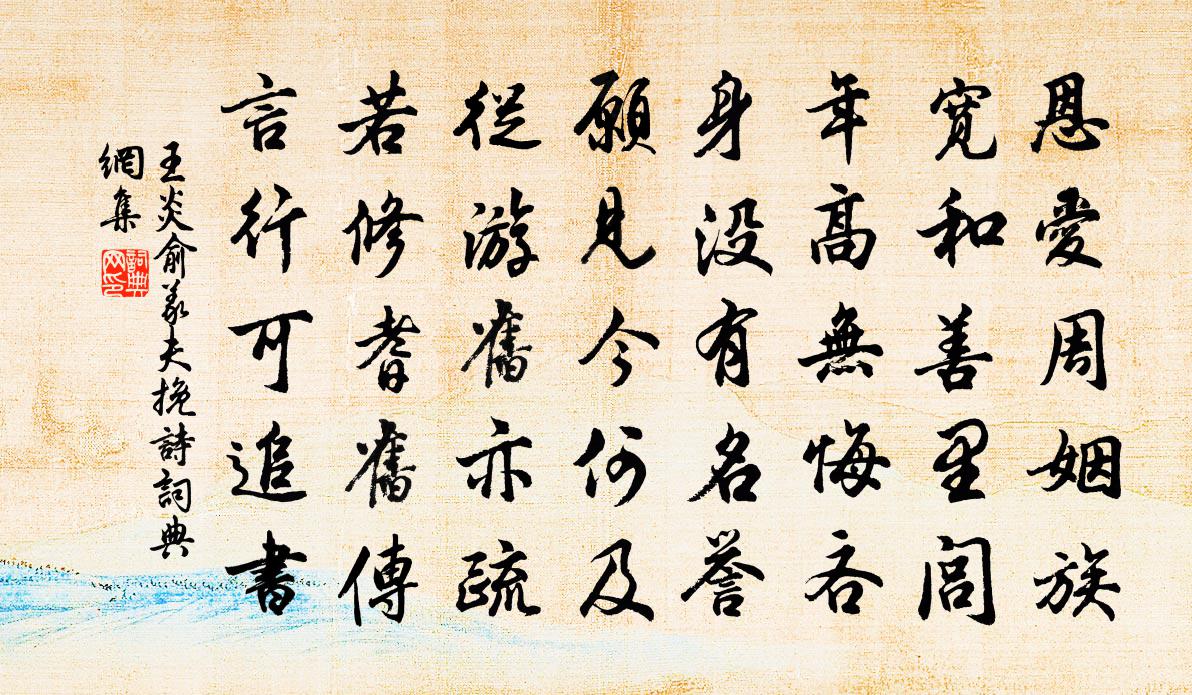 恩愛周姻族
寬和善里閭
年高無悔吝
身没有名譽
願見今何及
從游舊亦疏
若修耆舊傳
言行可追書
王炎俞義夫挽詩詞典
網集
詞典
网印